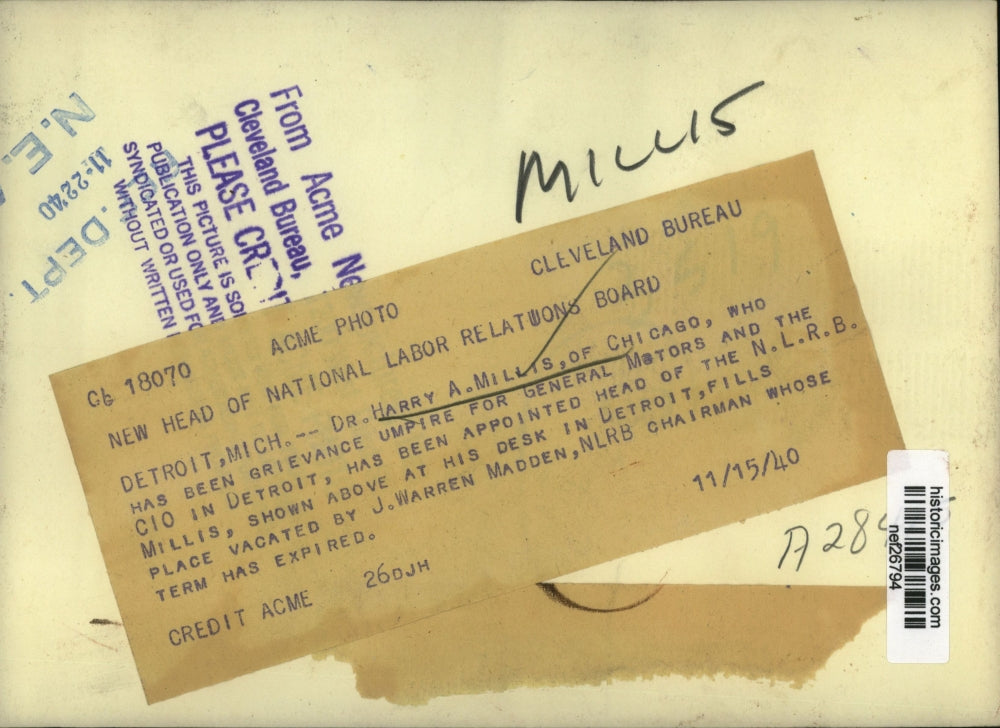 MILLIS
N.E.A.
11-22 40
DEPT.
From Acme
Cleveland Bureau,
PLEASE CREDIT
THIS PICTURE IS
PUBLICATION ONLY AND
SYNDICATED OR USED
WITHOUT WRITTEN
CLEVELAND BUREAU
ACME PHOTO
18070
NEW HEAD OF NATIONAL LABOR RELATWONS BOARD
DETROIT,MICH.-- DR.HARRY A.MILLIS,OF CHICAGO, WHO
HAS BEEN GRIEVANCE UMPIRE FOR GENERAL MOTORS AND THE
CIO IN DETROIT, HAS BEEN APPOINTED HEAD OF THE N.L.R.B.
MILLIS, SHOWN ABOVE AT HIS DESK IN DETROIT,FILLS
PLACE VACATED BY J.WARREN MADDEN,NLRB CHAIRMAN WHOSE
TERM HAS EXPIRED.
11/15/40
CREDIT ACME 26DJH
A 28
historicimages.com
nef26794